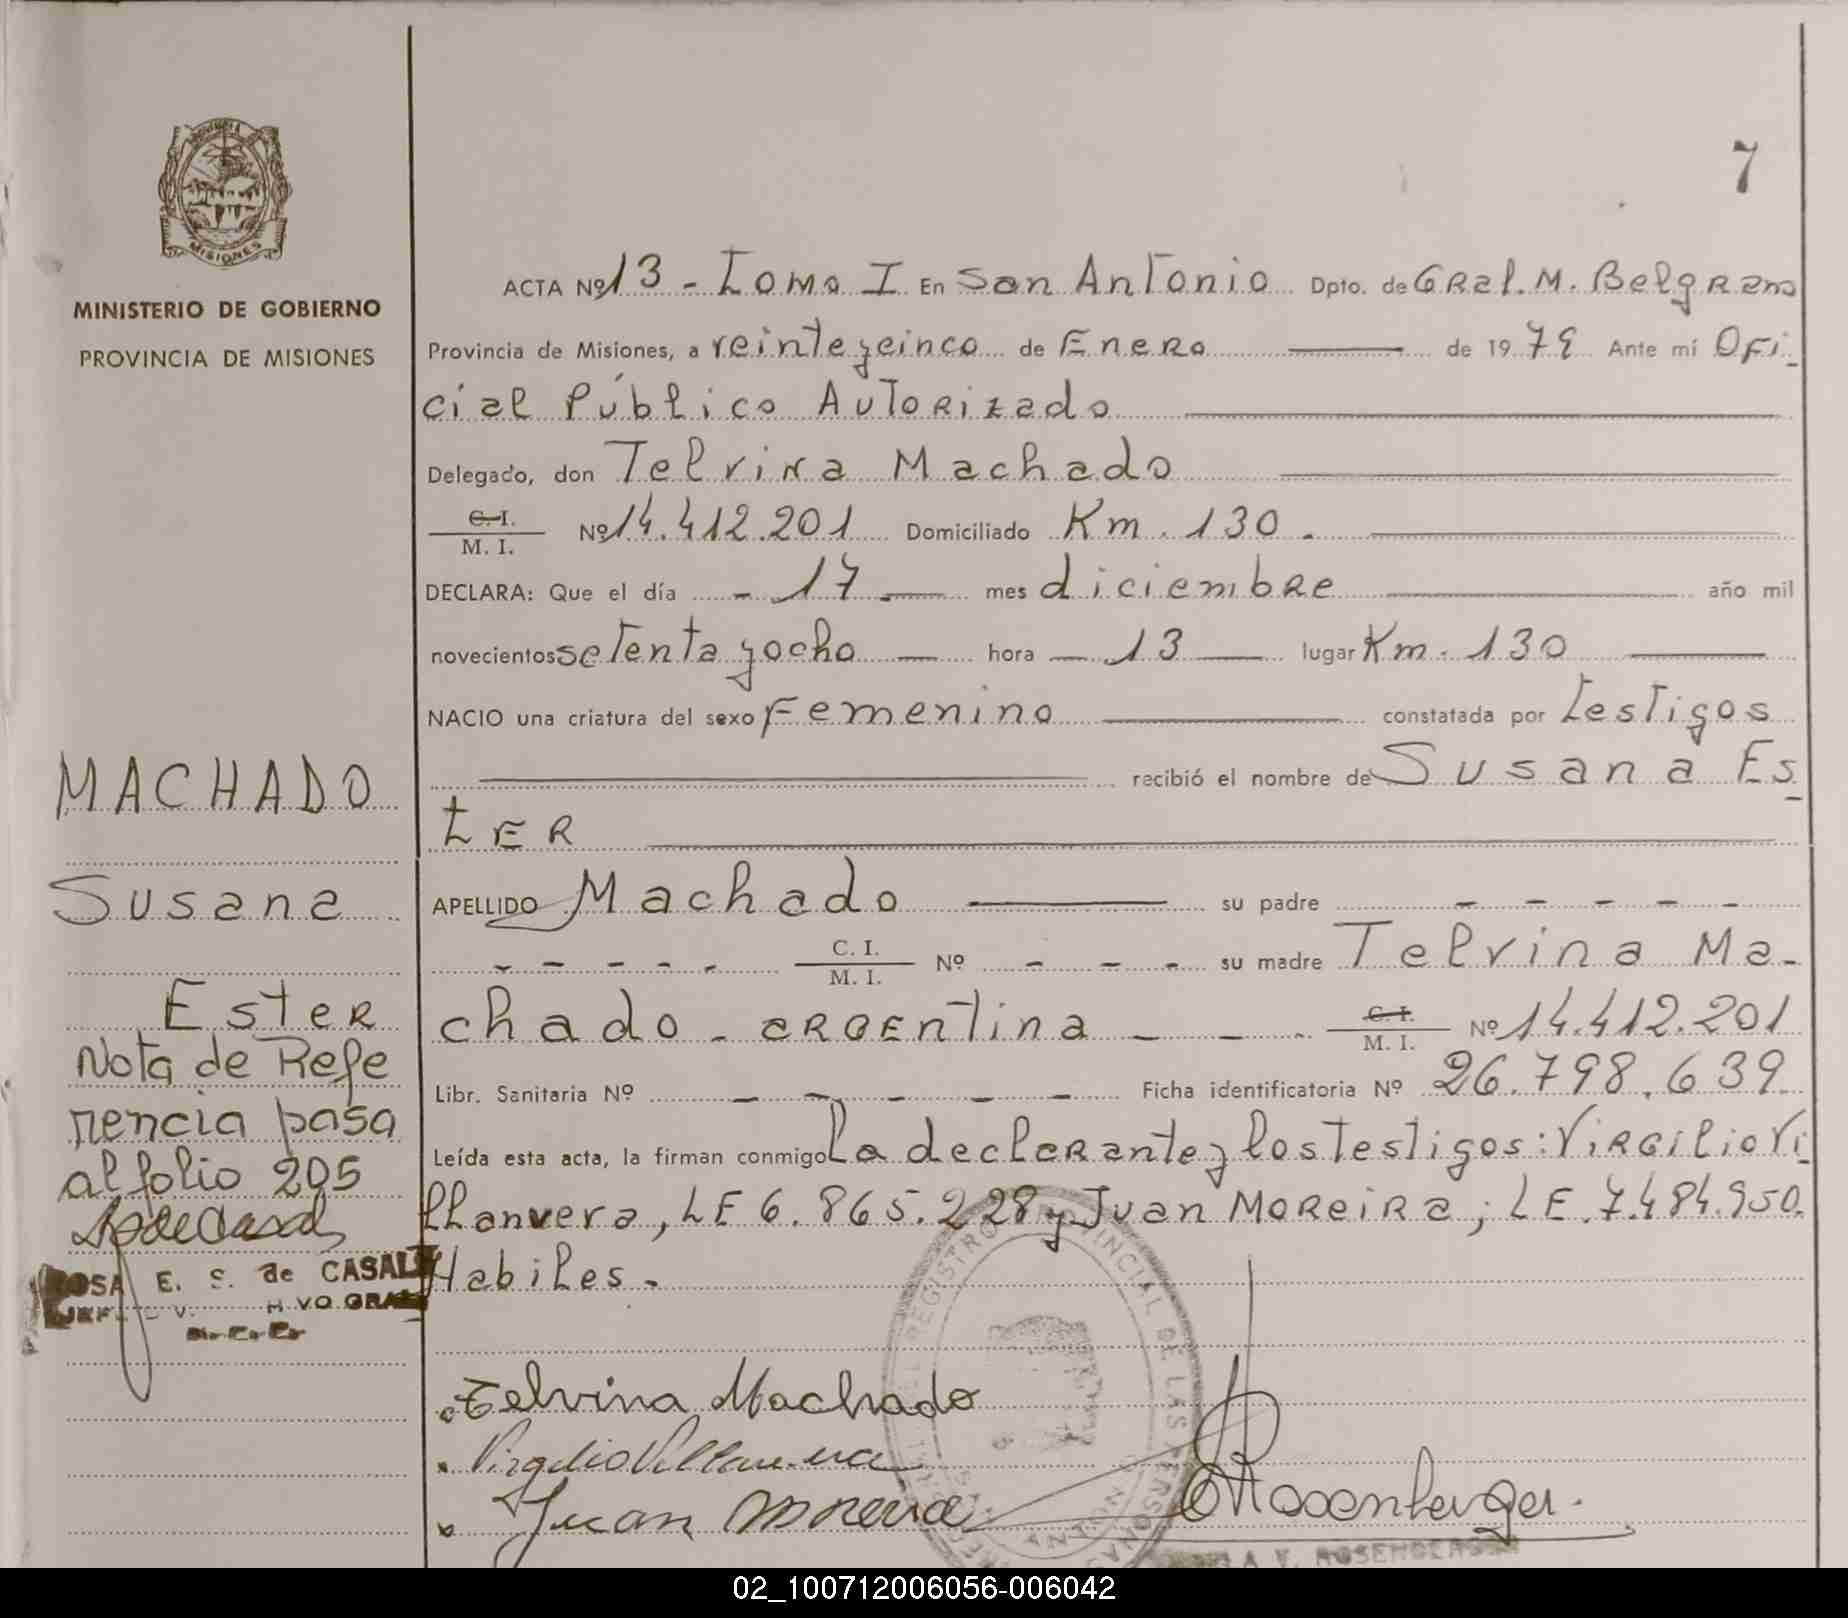 7
MISIONES
MINISTERIO DE GOBIERNO
PROVINCIA DE MISIONES
MACHADO
Susana
Ester
Nota de Refe
rencia pasa
al folio 205
ROSA E. S. de CASALI
ACTA Nº 13 - Tomo I En San Antonio Dpto. de GRal. M. Belgrano
Provincia de Misiones, a veinteycinco de Enero de 1979 Ante mí Ofi-
cial Público Autorizado
Delegado, don Telvina Machado
C. I. / M. I. Nº 14.412.201 Domiciliado Km. 130.
DECLARA: Que el día - 17 - mes diciembre año mil
novecientos setenta y ocho - hora - 13 - lugar Km. 130
NACIO una criatura del sexo Femenino constatada por testigos
recibió el nombre de Susana Es-
tER
APELLIDO Machado su padre - - - - -
- - - - - C. I. / M. I. Nº - - - su madre Telvina Ma-
chado - argentina - - - C. I. / M. I. Nº 14.412.201
Libr. Sanitaria Nº - - - - - Ficha identificatoria Nº 26.798.639
Leída esta acta, la firman conmigo la declarante y los testigos: Virgilio Vi-
llanvera, LE 6.865.228 y Juan Moreira; LE. 7.484.950.
Habiles.-
Telvina Machado
Virgilio Villanvera
Juan Moreira
Rosenberger.
REGISTRO PROVINCIAL DE LAS PERSONAS
V. ROSENBERGER
02_100712006056-006042